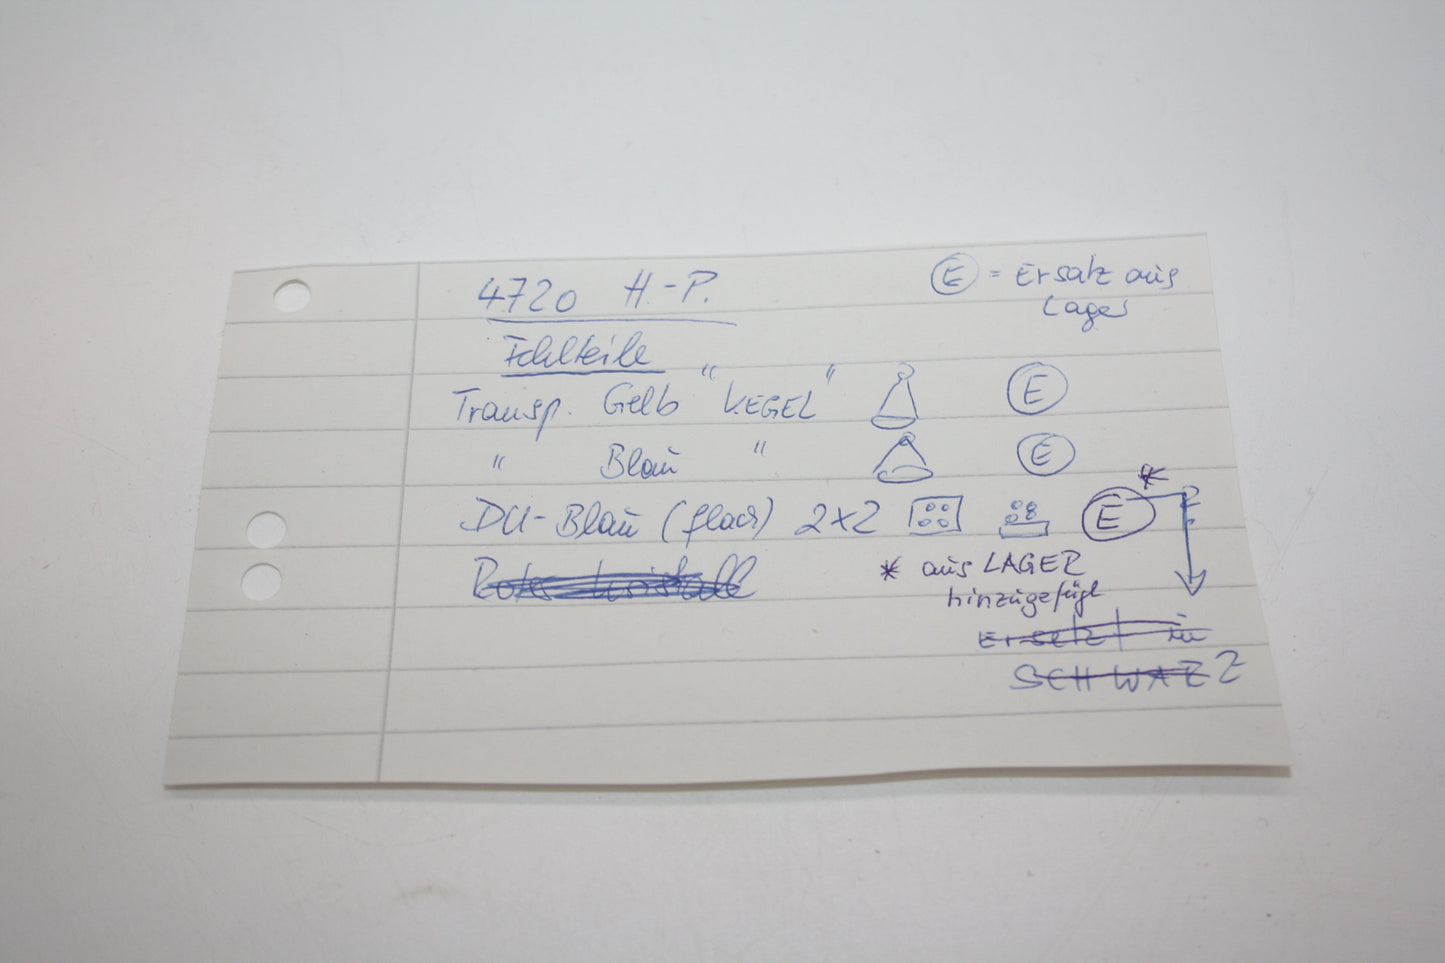 4720 H.-P.
Ⓔ = Ersatz aus
Lager
Fehlteile
Transp. Gelb "KEGEL" Ⓔ
" Blau " Ⓔ
DU-Blau (flach) 2x2 Ⓔ *
Rotes Kristall
* aus LAGER
hinzugefügt
Ersetzt in
SCHWARZ